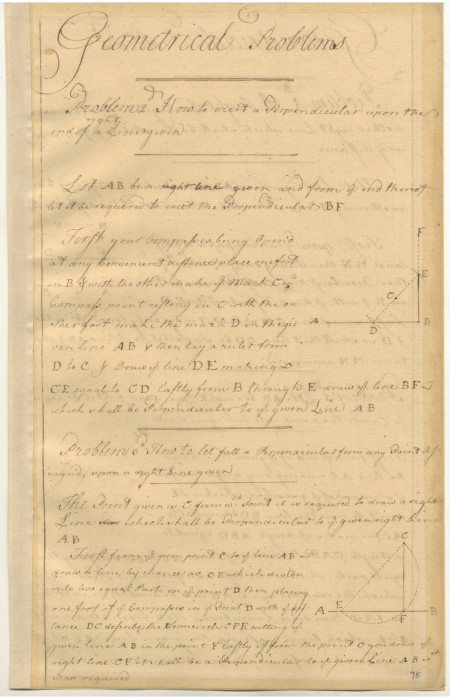 Geometrical Problems
Problem 2d How to erect a Perpendicular upon the
right
end of a Line given
Let AB be a right line given and from ye end thereof
let it be required to erect the Perpendicular BF
First your Compasses being Opened
at any Convenient distance place one foot
in B & with the other make ye Mark C ye
Compass point resting in C with the o
ther foot make the mark D in the giv
en line AB & then lay a ruler from
D to C & Draw ye line DE making
CE equal to CD lastly from B through E draw ye line BF
which shall be Perpendicular to ye given Line AB
F
E
C
A
D
B
Problem 3 How to let fall a Perpendicular from any Point As
signed, upon a right Line given
The Point given is C from wch Point it is required to draw a right
Line which shall be Perpendicular to ye given right Line
AB
First from ye given point C to ye line AB
draw a line by chance as CE which divide
into two equal Parts in ye point D then placing
one foot of ye Compasses in ye Point D with ye dis
tance DC describe the Semicircle CFE cutting ye
given line AB in the point F lastly if from the point C you draw ye
right line CF it shall be a Perpendicular to ye given Line AB
was required
C
D
A
E
F
B
75